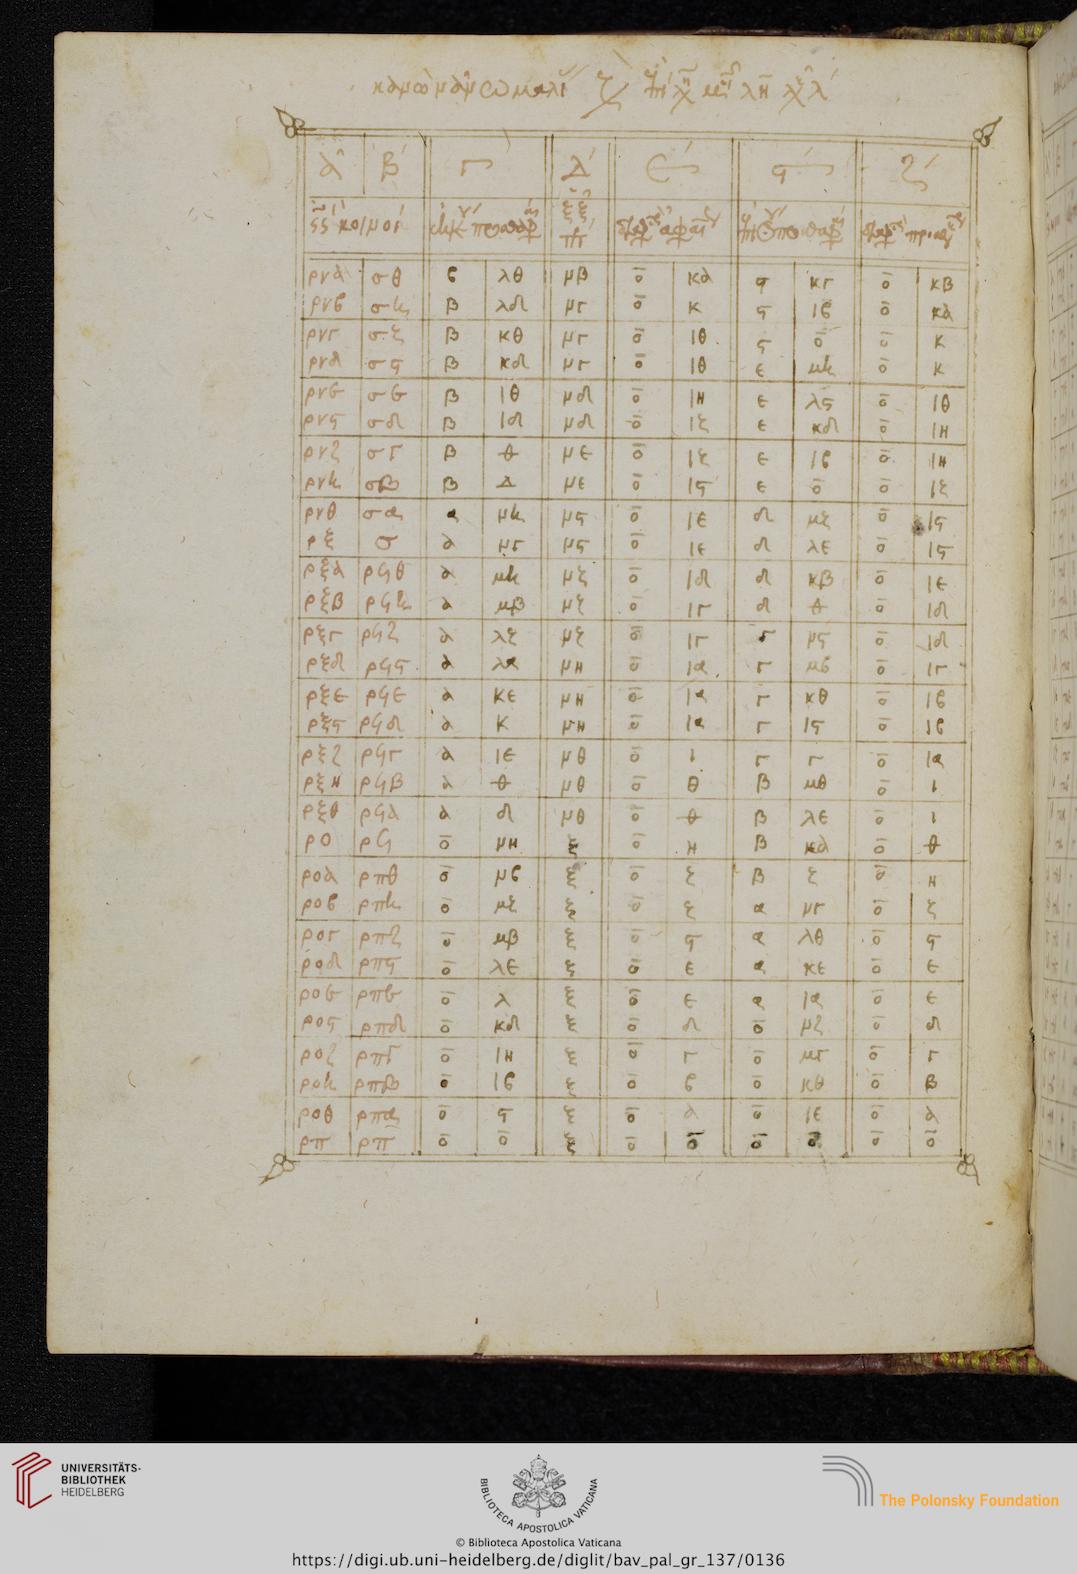 α β γ Δ ε ϛ ζ
ρνα σθ β λθ μβ ο κα ϛ κγ ο κβ
ρνβ ση β λδ μγ ο κ ϛ ιβ ο κα
ρνγ σζ β κθ μγ ο ιθ ϛ ο ο κ
ρνδ σϛ β κδ μγ ο ιθ ε μη ο κ
ρνε σε β ιθ μδ ο ιη ε λϛ ο ιθ
ρνϛ σδ β ιδ μδ ο ιζ ε κδ ο ιη
ρνζ σγ β θ με ο ιζ ε ιβ ο ιη
ρνη σβ β Δ με ο ιϛ ε ο ο ιζ
ρνθ σα α μη μϛ ο ιε δ μζ ο ιϛ
ρξ σ α μγ μϛ ο ιε δ λε ο ιϛ
ρξα ρϟθ α μη μζ ο ιδ δ κβ ο ιε
ρξβ ρϟη α μβ μζ ο ιγ δ θ ο ιδ
ρξγ ρϟζ α λζ μζ ο ιγ γ μϛ ο ιδ
ρξδ ρϟϛ α λα μη ο ια γ μβ ο ιγ
ρξε ρϟε α κε μη ο ια γ κθ ο ιβ
ρξϛ ρϟδ α κ μη ο ια γ ιϛ ο ιβ
ρξζ ρϟγ α ιε μθ ο ι γ γ ο ια
ρξη ρϟβ α θ μθ ο θ β μθ ο ι
ρξθ ρϟα α δ μθ ο θ β λε ο ι
ρο ρϟ ο μη ξ ο η β κα ο θ
ροα ρπθ ο μβ ξ ο ζ β ζ ο η
ροβ ρπη ο μζ ξ ο ζ α μγ ο ζ
ρογ ρπζ ο μβ ξ ο ϛ α λθ ο ϛ
ροδ ρπϛ ο λε ξ ο ε α κε ο ε
ροε ρπε ο λ ξ ο ε α ια ο ε
ροϛ ρπδ ο κδ ξ ο δ ο μζ ο δ
ροζ ρπγ ο ιη ξ ο γ ο μγ ο γ
ροη ρπβ ο ιβ ξ ο β ο κθ ο β
ροθ ρπα ο ϛ ξ ο α ο ιε ο α
ρπ ρπ ο ο ξ ο ο ο ο ο ο
UNIVERSITÄTS-
BIBLIOTHEK
HEIDELBERG
BIBLIOTECA APOSTOLICA VATICANA
The Polonsky Foundation
© Biblioteca Apostolica Vaticana
https://digi.ub.uni-heidelberg.de/diglit/bav_pal_gr_137/0136